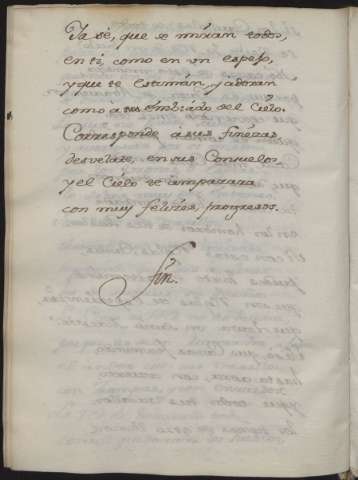 Ya sé, que se miran todos,
en ti, como en un espejo,
y que te estiman, y adoran
como à tus Embiado del Cielo.
Corresponde à sus finezas,
desvelate, en sus Consuelos
y el Cielo te amparara
con muy felizes, progresos.
fin.